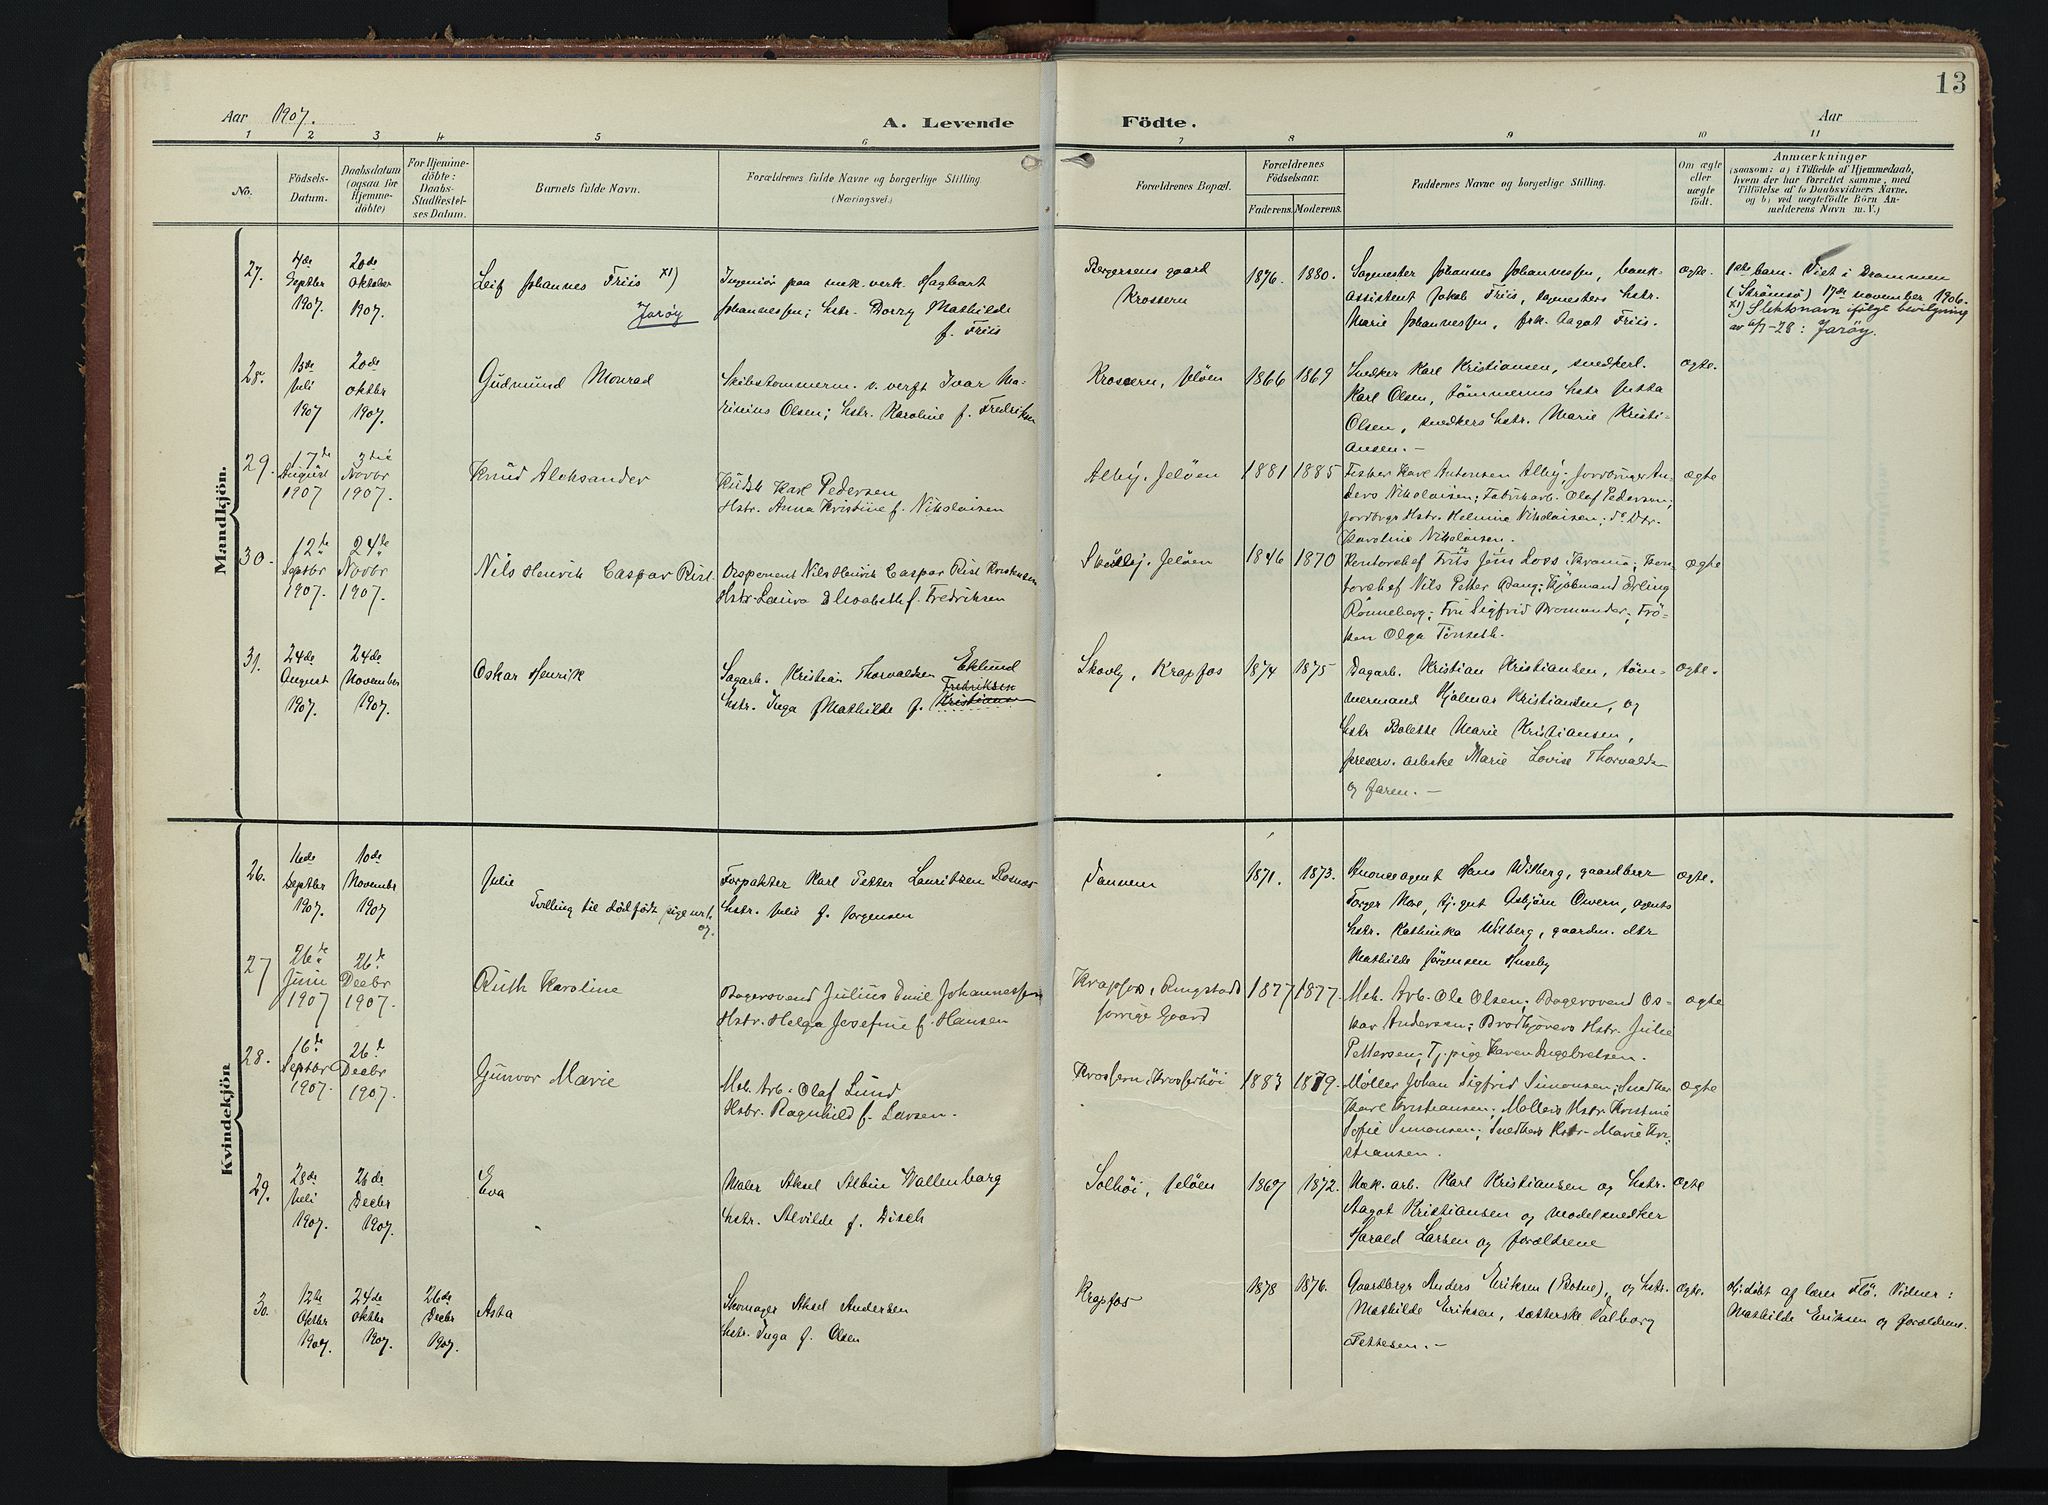 13
Aar 1907.
A. Levende Födte.
Aar
1 2 3 4 5 6 7 8 9 10 11
No.
Födsels-
Datum.
Daabsdatum
(ogsaa for
Hjemme-
döbte)
For Hjemme-
döbte:
Daabs-
Stadfæstel-
ses Datum.
Barnets fulde Navn.
Forældrenes fulde Navne og borgerlige Stilling
(Næringsvei.)
Forældrenes Bopæl.
Forældrenes
Födselsaar.
Faderens. Moderens.
Faddernes Navne og borgerlige Stilling.
Om ægte
eller
uægte
födt.
Anmærkninger
(saasom: a) i Tilfælde af Hjemmedaab,
hvem der har forrettet samme, med
Tilföielse af to Daabsvidners Navne.
og b) ved uægtefödte Börn An-
melderens Navn m. V.)
Mandkjön.
27.
4de
Septbr
1907.
20de
oktober
1907.
Leif Johannes Friis x1)
Jarøy
Ingeniør paa mek. verk. Hagbart
Johannessen; hstr. Dorry Mathilde
f. Friis
Bergersens gaard
Krossern
1876. 1880.
Sagmester Johannes Johannessen, bank-
assistent Jakob Friis, sagmesters hstr.
Marie Johannessen, frk. Aagot Friis.
ægte.
1ste barn. Viet i Drammen
(Strømsø) 17de november 1906.
x1) Slektsnavn ifølge bevilgning
av 6/7-28: Jarøy.
28.
15de
juli
1907
20de
oktbr
1907.
Gudmund Monrad
Skibstømmerm. v. verft Ivar Ma-
rinius Olsen; hstr. Karoline f. Fredriksen
Krossern, Jeløen
1866 1869
Snedker Karl Kristiansen, snedkerl.
Karl Olsen, tömmerms hstr Jutta
Olsen, snedkers hstr. Marie Kristi-
ansen. —
ægte.
29.
17de
August
1907
3die
Novbr
1907.
Knud Aleksander
Kudsk Karl Pedersen
Hstr. Anna Kristine f. Nikolaisen
Alby. Jeløen
1881 1885
Fisker Karl Antonsen Alby; Jordbruger An-
ders Nikolaisen; Fabrikarb. Olaf Pedersen;
Jordbrgs Hstr. Helmine Nikolaisen; do Dtr.
Karoline Nikolaisen.
ægte
30.
12te
Septbr
1907.
24de
Novbr
1907.
Nils Henrik Caspar Rist.
Disponent Nils Henrik Caspar Rist Kristensen
Hstr. Laura Elisabeth f. Fredriksen
Jeløen
1846 1870
Kontorchef Friis Jens Loss Krania; Kon-
torchef Nils Petter Bang; Kjøbmand Erling
Rönneberg; Fru Sigfrid Bromander; Frö-
ken Olga Tönseth.
ægte
31.
24de
August
1907.
24de
November
1907.
Oskar Henrik
Sagarb. Kristian Thorvaldsen Eklund
Fredriksen
hstr. Inga Mathilde f. Kristiansen
Skovly, Krapfos
1874 1875
Dagarb. Kristian Kristiansen, töm-
mermand Hjalmar Kristiansen, og
hstr Bolette Marie Kristiansen,
preserv. arbeske Marie Lovise Thorvalds-
og faren. —
ægte.
Kvindekjön
26.
16de
Septbr
1907.
10de
Novembr
1907
Julie
Tvilling til dødfødt pige nr 1.
07.
Forpakter Karl Petter Lauritsen Rosnæs
hstr. Julie f. Jørgensen
1871. 1873.
Annonceagent Hans Wilberg, gaardbrgr
Torger Moe, tj.gut Asbjörn Owern, agents
hstr. Kathinka Wilberg, gaardm. dtr
Mathilde Jørgensen Huseby
ægte.
27
26de
Juni
1907
26de
Decbr
1907.
Ruth Karoline
Bagersvend Julius Emil Johannessen
Hstr. Helga Josefine f. Hansen
Krapfos, Ringstads
forrige Gaard
1877 1877.
Mek. Arb. Ole Olsen; Bagersvend Os-
kar Andersen; Brödkjörers Hstr. Julie
Pettersen; Tj. pige Karen Ingebretsen.
ægte
28.
16de
Septbr
1907.
26de
Decbr
1907.
Gunvor Marie
Mek. Arb. Olaf Lund
Hstr. Ragnhild f. Larsen.
Krossern, Krosserhöi
1883 1879.
Møller Johan Sigfrid Simonsen; Snedker
Karl Kristiansen; Møllers Hstr. Kristine
Sofie Simonsen; Snedkers Hstr. Marie Kri-
stiansen.
ægte
29.
28de
Juli
1907.
26de
Decbr
1907.
Eva
Maler Aksel Albin Wallenborg
hstr. Alvilde f. Disch
Solhöi, Jeløen
1869 1872.
Mek. arb. Karl Kristiansen og hstr.
Aagot Kristiansen og modelsnedker
Harald Larsen og forældrene
ægte
30.
12te
Oktbr
1907.
24de
Oktbr
1907.
26de
Decbr
1907.
Asta
Skomager Aksel Andersen
hstr. Inga f. Olsen
Krapfos
1878 1876.
Gaardbrgr Anders Eriksen (Botne), og hstr.
Mathilde Eriksen, sætterske Valborg
Pettesen. —
ægte.
Hjdøbt af lærer Flö. Vidner:
Mathilde Eriksen og forældrene.